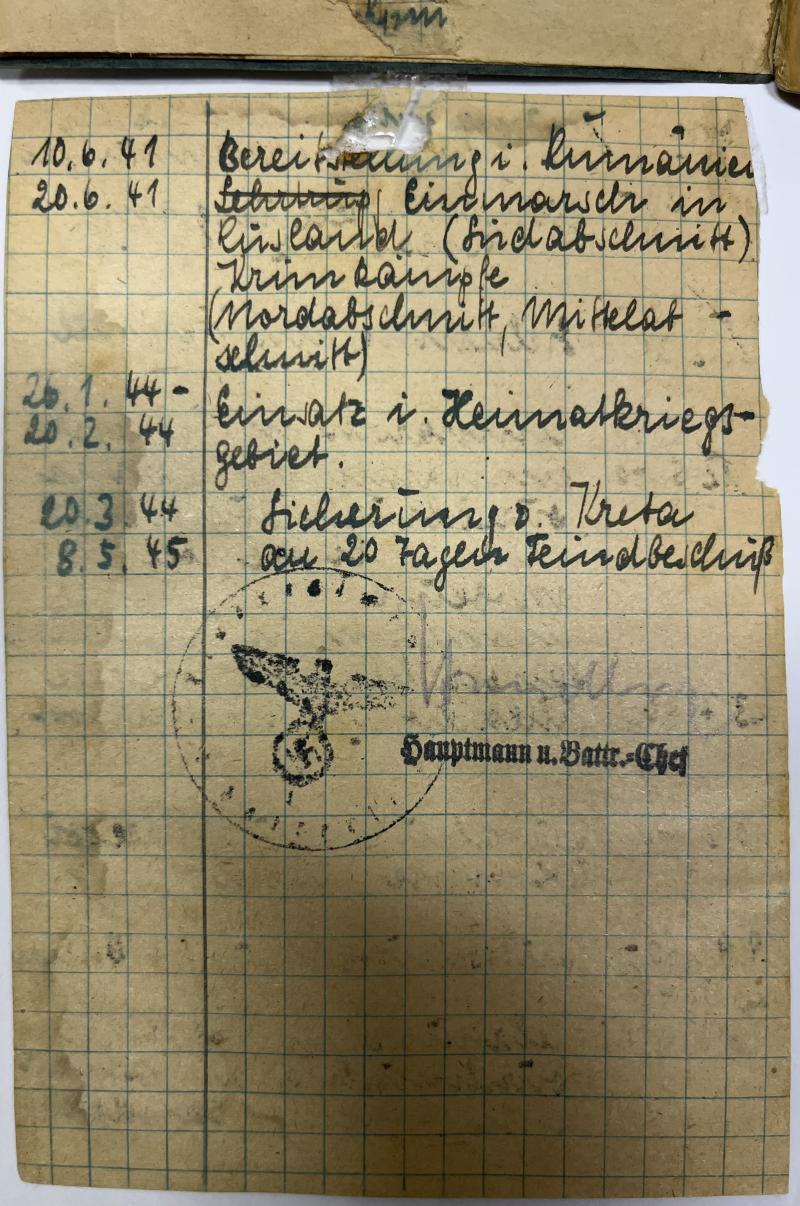 10.6.41 Bereitstellung i. Rumänien
20.6.41 Einmarsch in
Rusland (Südabschnitt)
Krimkämpfe
(Nordabschnitt, Mittelab-
schnitt)
26.1.44- Einsatz i. Heimatkriegs-
20.2.44 gebiet.
20.3.44 Sicherung v. Kreta
8.5.45 an 20 Tagen Feindbeschuß
Hauptmann u. Battr.-Chef